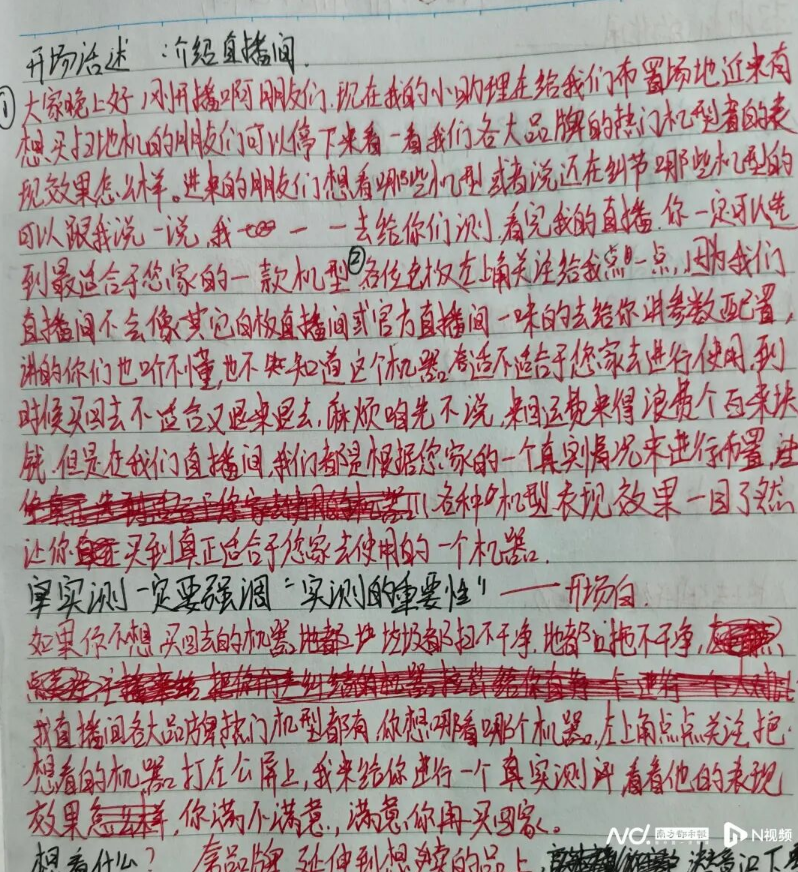 开场话述：介绍直播间.
①大家晚上好,刚开播啊朋友们.现在我的小助理在给我们布置场地近来有
想买扫地机的朋友们可以停下来看一看我们各大品牌的热门机型着的表
现效果怎么样。进来的朋友们想看哪些机型或者说还在纠节哪些机型的
可以跟我说一说,我一一去给你们测,看完我的直播.你一定可以选
到最适合于您家的一款机型②各位老板左上角关注给我点一点,因为我们
直播间不会像其它白板直播间或官方直播间一味的去给你讲参数配置,
讲的你们也听不懂,也不知道这个机器适不适合于您家去进行使用,到
时候买回去不适合又退来退去,麻烦咱先不说,来回运费来得浪费个百来块
钱.但是在我们直播间,我们都是根据您家的一个真实情况来进行布置,让
各种机型表现效果一目了然
让你买到真正适合于您家去使用的一个机器.
实测一定要强调“实测的重要性”——开场白.
如果你不想买回去的机器,地都垃圾都扫不干净.地都拖不干净,
我直播间各大品牌热门机型都有,你想哪看哪个机器,左上角点点关注把
想看的机器打在公屏上,我来给你进行一个真实测评,看看他的表现
效果怎么样,你满不满意,满意你再买回家。
想看什么?品牌延伸到想卖的品上,
南方都市报 N视频